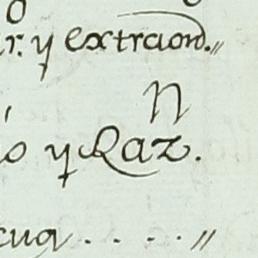 r. y extraord.
n
o y Raz.
cuq . . . . //